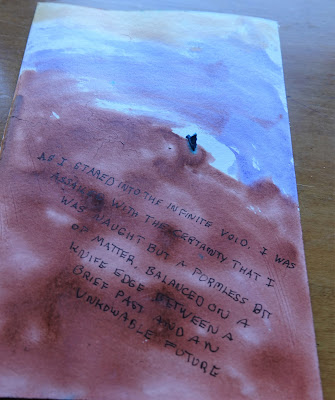 AS I STARED INTO THE INFINITE VOID, I WAS
ASSAILED WITH THE CERTAINTY THAT I
WAS NAUGHT BUT A FORMLESS BIT
OF MATTER, BALANCED ON A
KNIFE EDGE BETWEEN A
BRIEF PAST AND AN
UNKNOWABLE FUTURE